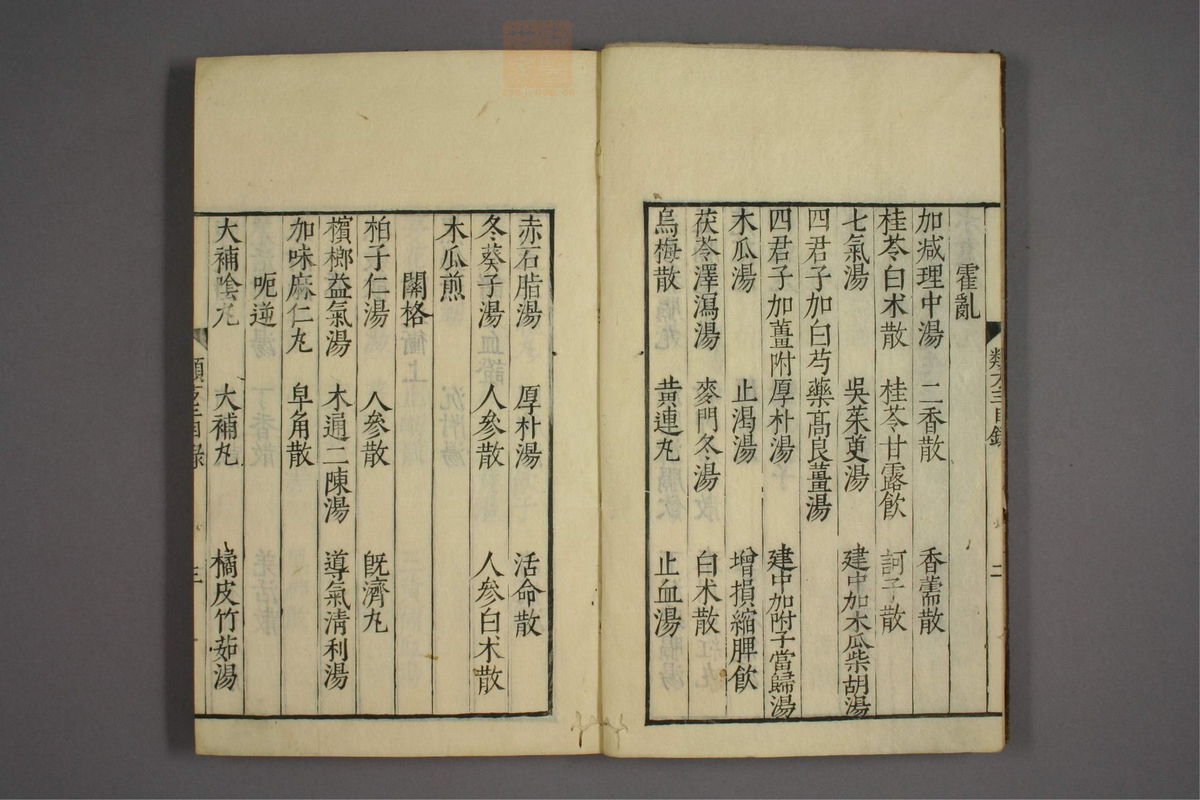 霍亂
加减理中湯 二香散 香薷散
桂苓白术散 桂苓甘露飲 訶子散
七氣湯 吳茱萸湯 建中加木瓜柴胡湯
四君子加白芍藥高良薑湯
四君子加薑附厚朴湯 建中加附子當歸湯
木瓜湯 止渴湯 增損縮脾飲
茯苓澤瀉湯 麥門冬湯 白术散
烏梅散 黄連丸 止血湯
類方三目錄 二
赤石脂湯 厚朴湯 活命散
冬葵子湯 人參散 人參白术散
木瓜煎
關格
柏子仁湯 人參散 旣濟丸
檳榔益氣湯 木通二陳湯 導氣清利湯
加味麻仁丸 皁角散
呃逆
大補陰丸 大補丸 橘皮竹茹湯
類方三目錄 三